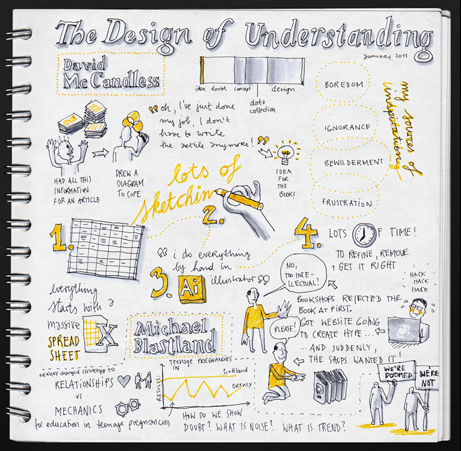 The Design of Understanding
January 2011
David
McCandless
idea doubt concept design
data
collection
"oh, I've just done
my job, I don't
have to write
the article anymore!"
HAD ALL THIS
INFORMATION
FOR AN ARTICLE
DREW A
DIAGRAM
TO COPE
IDEA
FOR THE
BOOK!
my sources of
inspiration
BOREDOM
IGNORANCE
BEWILDERMENT
FRUSTRATION
lots of
sketching
1.
2.
3.
4.
everything
starts with a
massive
SPREAD
SHEET
X
i do everything
by hand in
illustrator
Ai
LOTS OF TIME!
TO REFINE, REMOVE
+ GET IT RIGHT
NO,
TO INTE-
LLECTUAL!
PLEASE!
BOOKSHOPS REJECTED THE
BOOK AT FIRST.
GOT WEBSITE GOING
TO CREATE HYPE...
...AND SUDDENLY,
THE SHOPS WANTED IT!
HACK
HACK
HACK
Michael
Blastland
RELATIONSHIPS
VS
MECHANICS
for education in teenage pregnancies
teenage pregnancies in
Scotland
RESULTS
ORKNEY
HOW DO WE SHOW
DOUBT? WHAT IS NOISE? WHAT IS TREND?
WE'RE
DOOMED
WE'RE
NOT